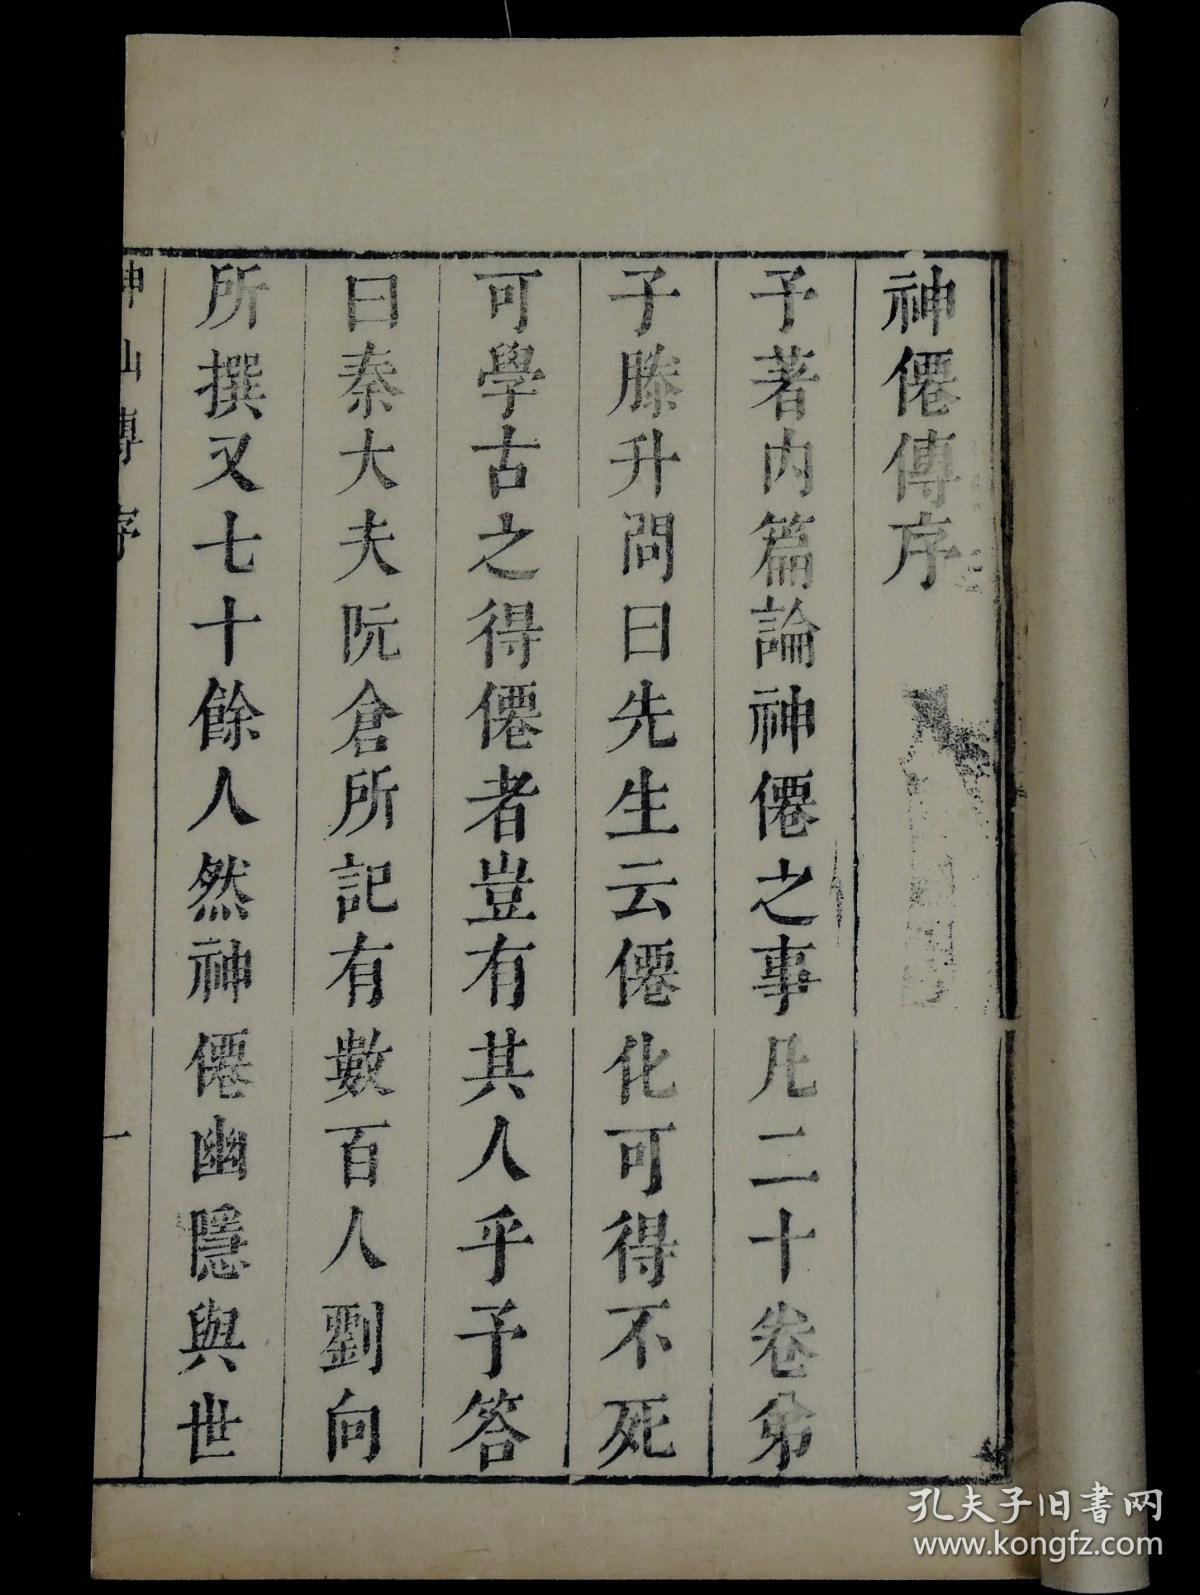 神僊傳序
予著内篇論神僊之事凡二十卷弟
子滕升問曰先生云僊化可得不死
可學古之得僊者豈有其人乎予答
曰秦大夫阮倉所記有數百人劉向
所撰又七十餘人然神僊幽隱與世
神仙傳序
一
孔夫子旧书网
www.kongfz.com